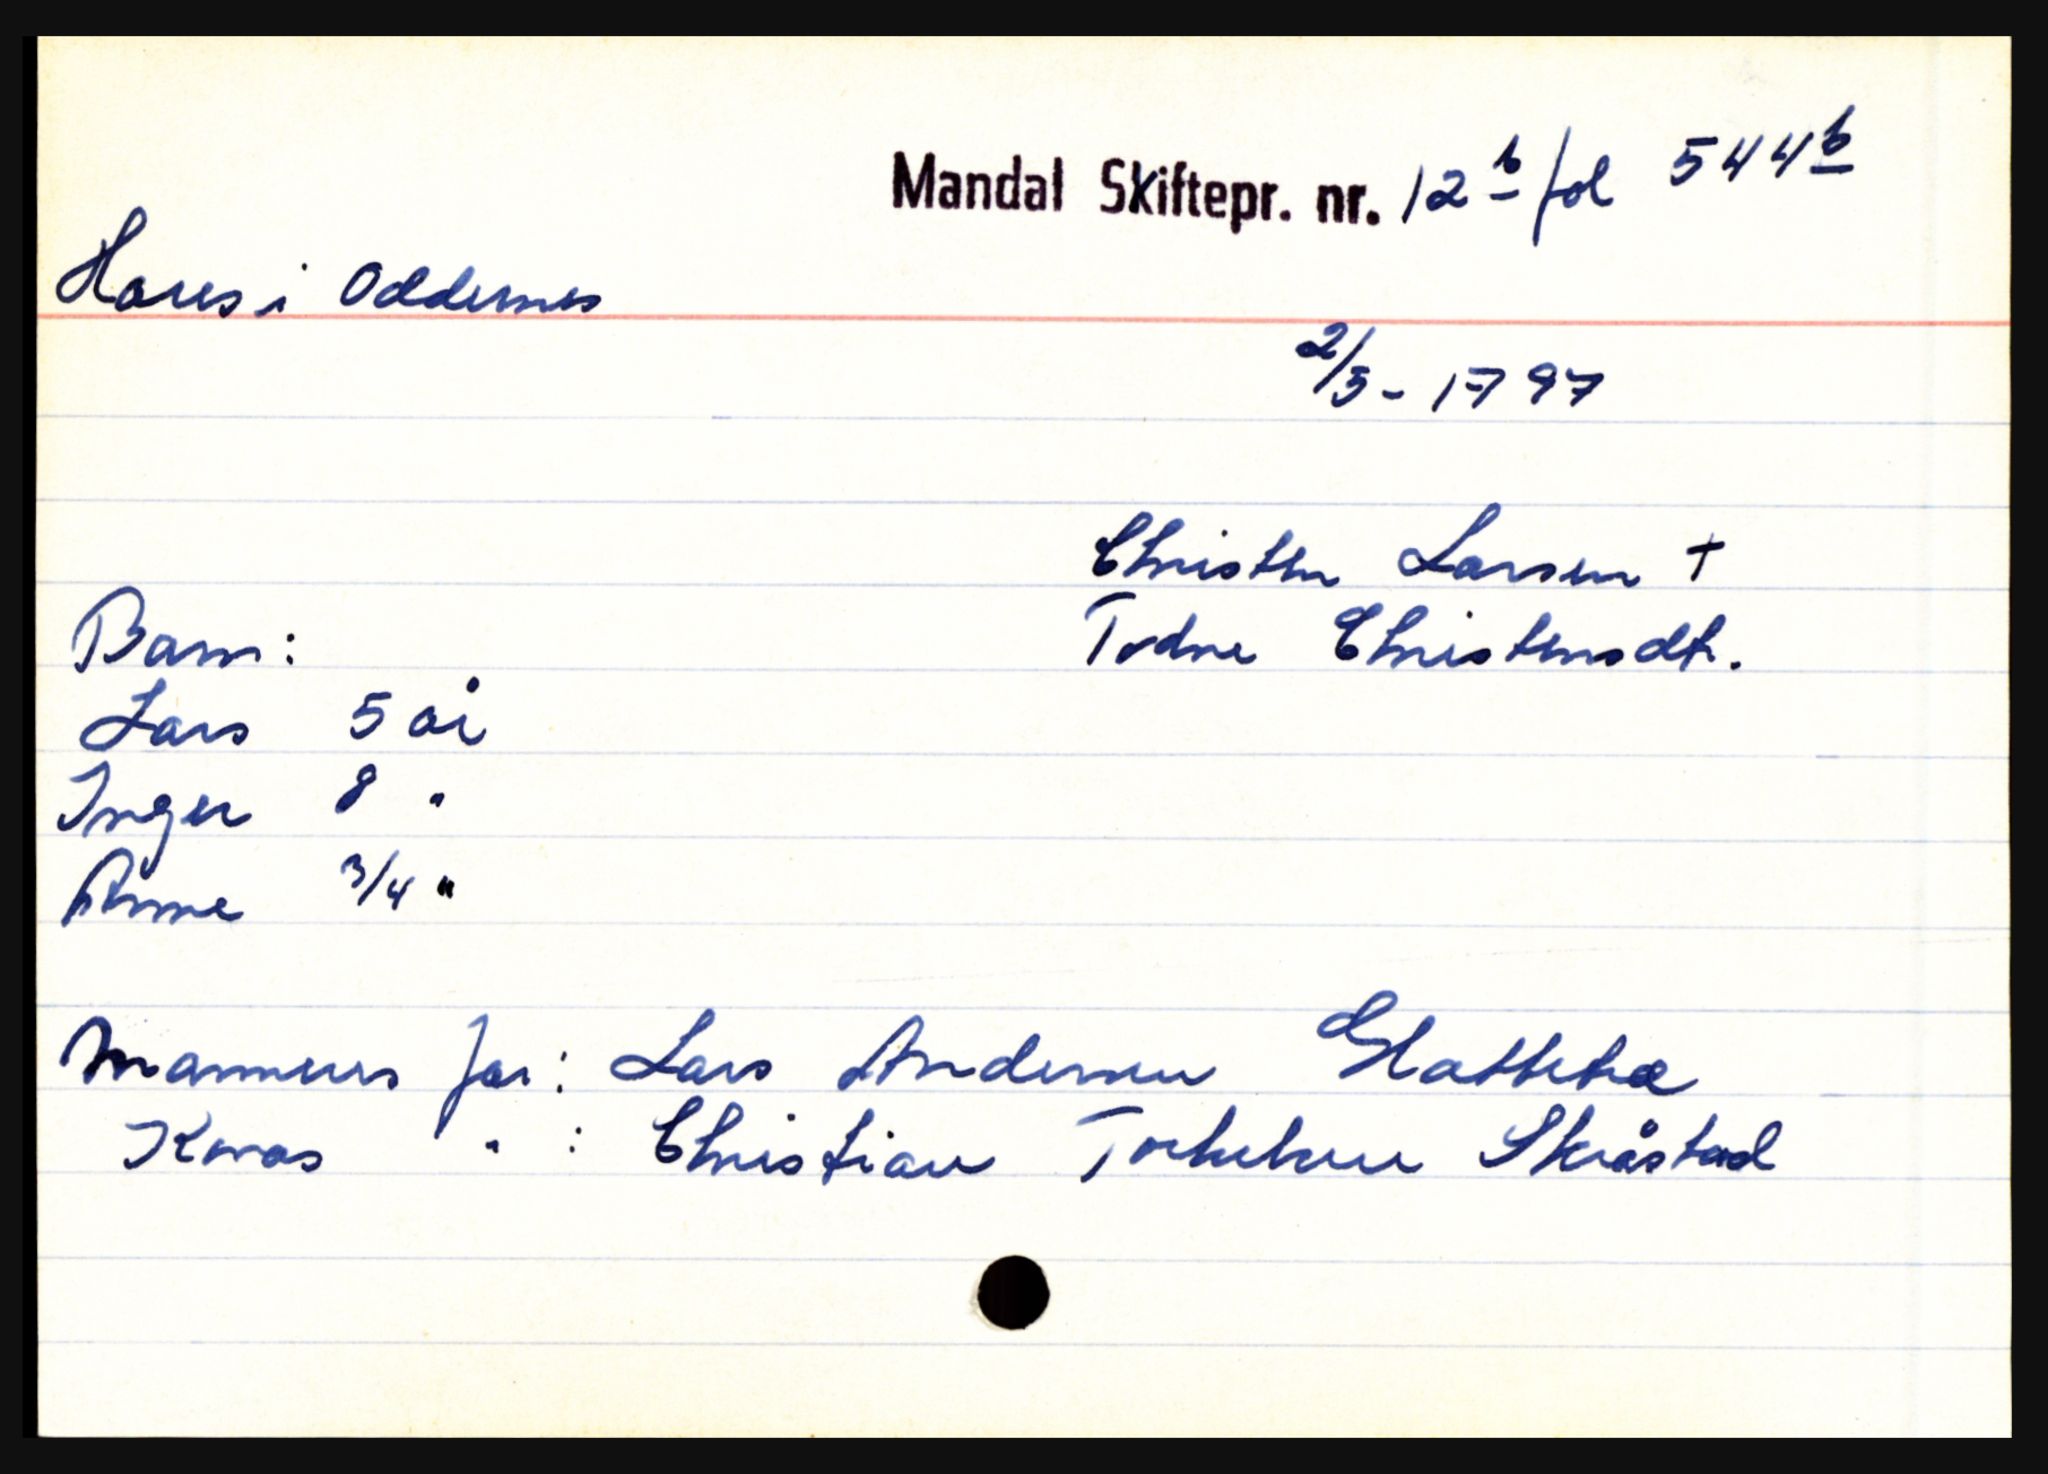 Mandal Skiftepr. nr. 12 b fol 544 b
Hares i Oddernes
2/5 - 1797
Christen Larsen +
Barn: Todne Christensdt.
Lars 5 år
Inger 8 "
Anne 3/4 "
Mannens far: Lars Andersen Glattetræ
Konas " : Christian Torkelsen Skråstad